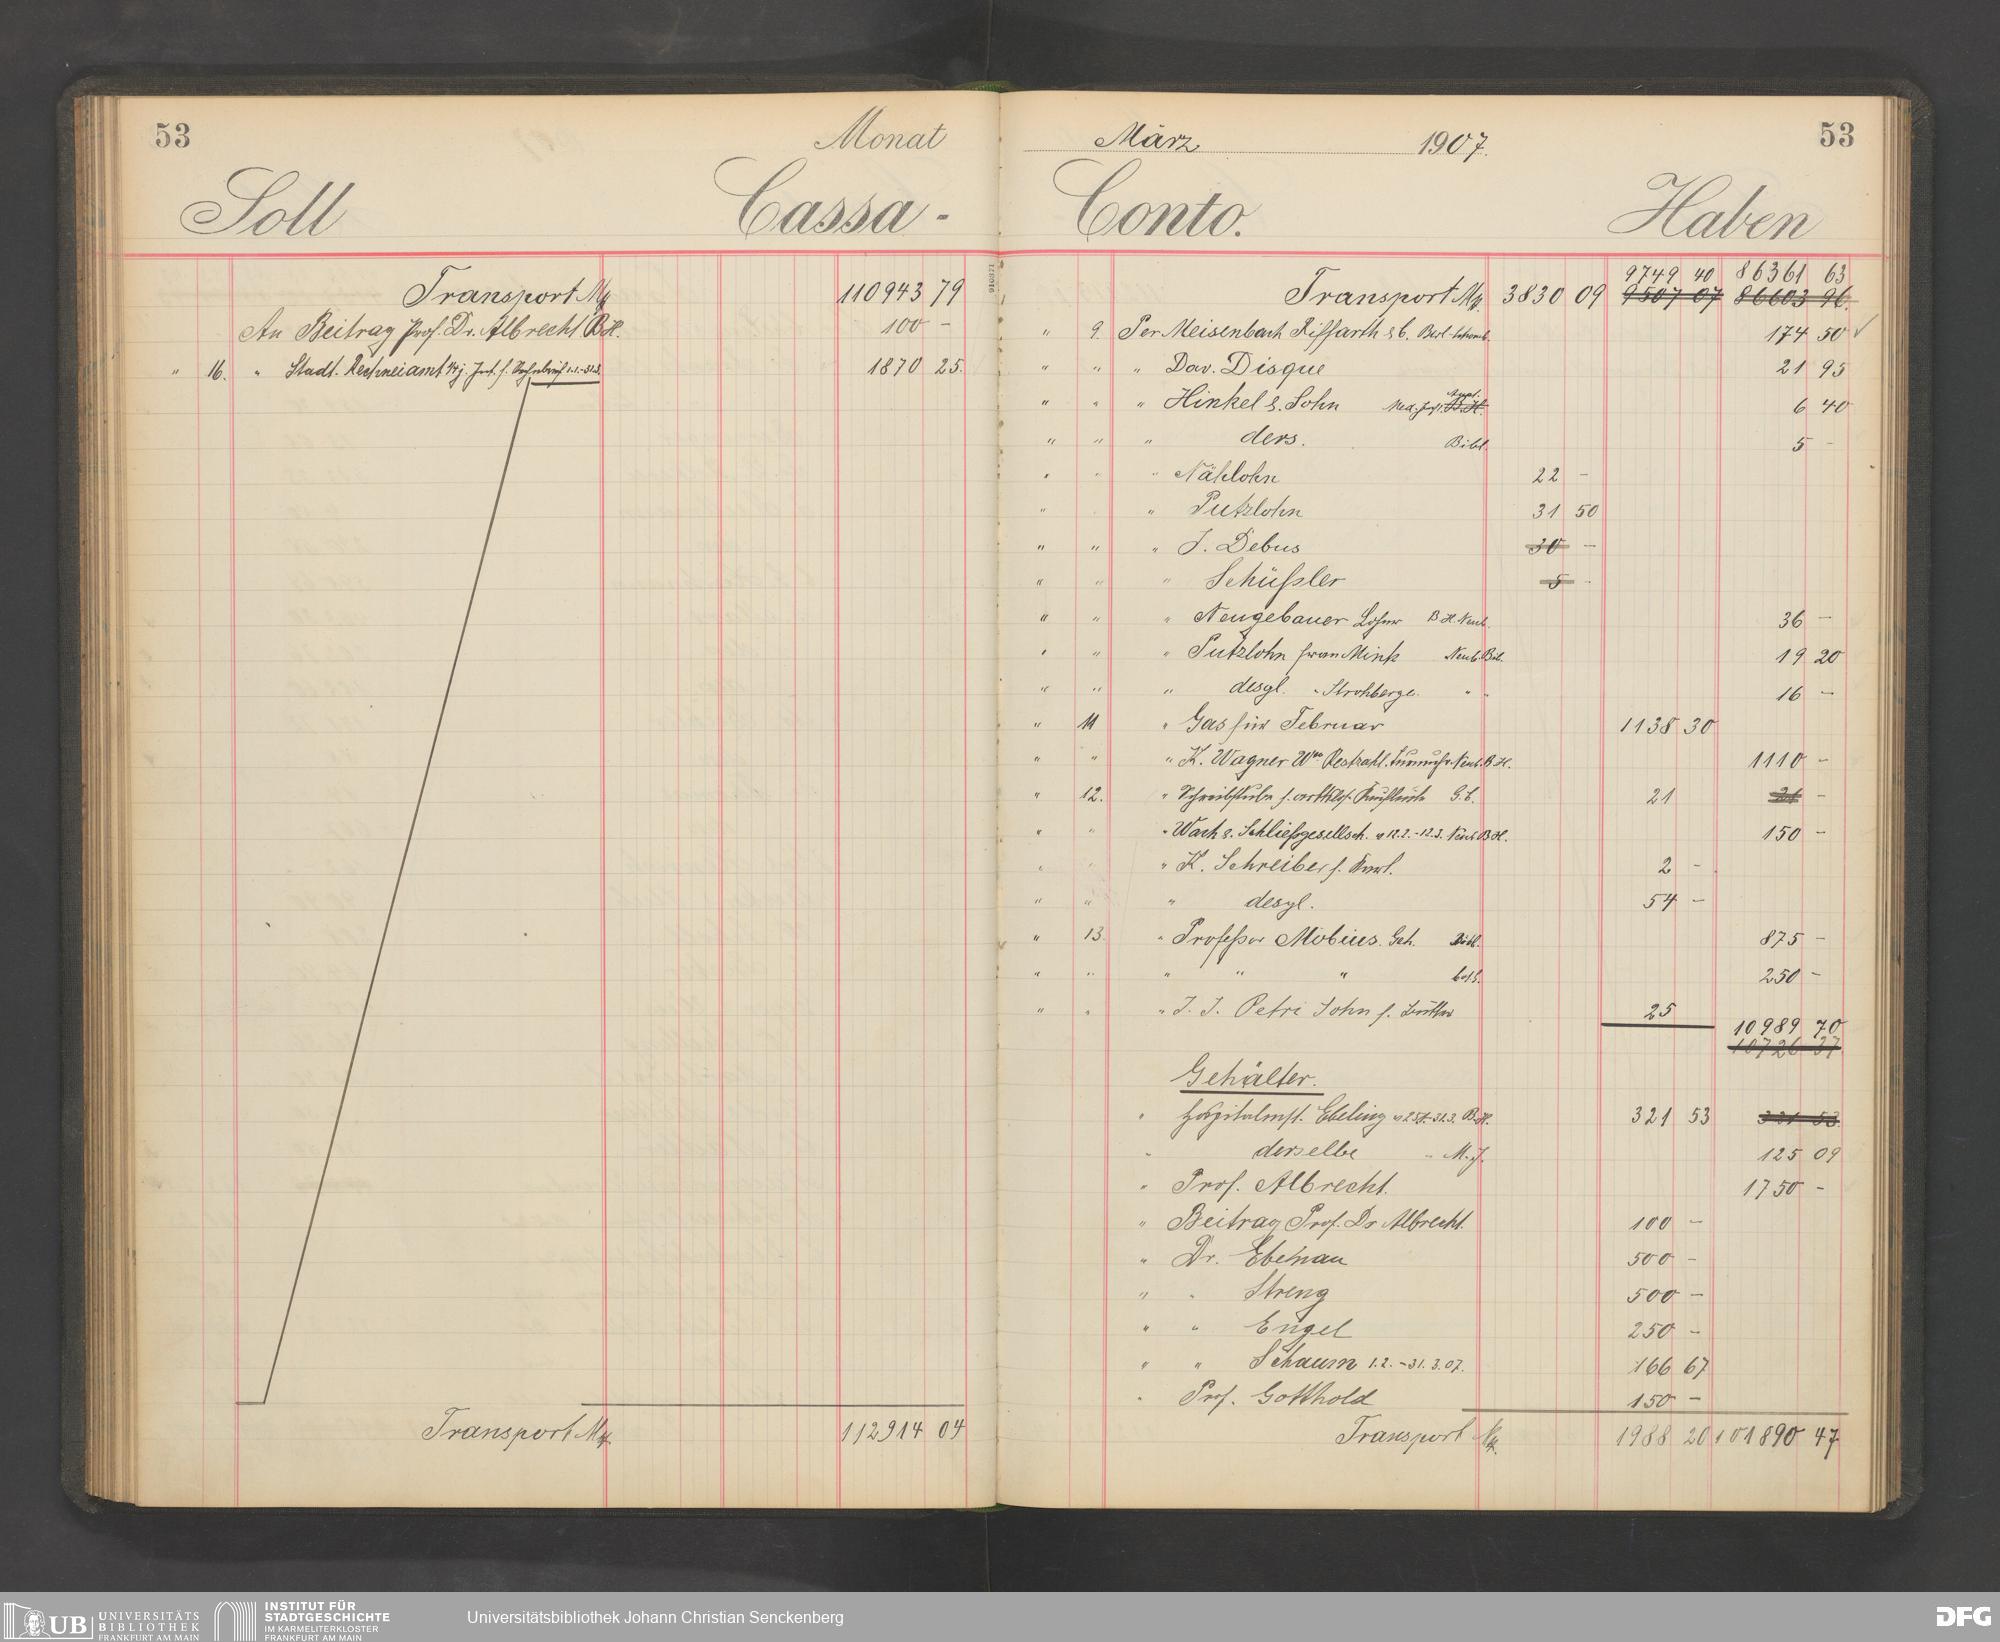 53
Monat
Soll
Cassa -
Transport M 110943 79
An Beitrag Prof. Dr. Albrecht B.H. 100 -
" 16. " Stadt. Rechneiamt
1870 25.
Transport M 112914 04
März 1907.
53
Conto.
Haben
9749 40 86361 63
Transport M 3830 09 9507 07 86603 96
" 9. Per Meisenbach Riffarth & C. 174 50
" " " Dav. Disque 21 95
" " " Hinkel & Sohn B.H. 6 40
" " " ders. Bibl. 5 -
" " " Nählohn 22 -
" " " Putzlohn 31 50
" " " J. Debus 30 -
" " " Schüßler 5 -
" " " Neugebauer B.H. Neub. 36 -
" " " Putzlohn Mink Neub. Bibl. 19 20
" " " desgl. " Strohberge. " " 16 -
" 11 " Gas für Februar 1138 30
" " " K. Wagner Wwe Restzahl. Neub. B.H. 1110 -
" 12. " Schreibstube f. Kaufleute 21 21 -
" " " Wach & Schließgesellsch. v 12.2.-12.3. Neub. B.H. 150 -
" " " K. Schreiber f. 2 -
" " " desgl. 54 -
" 13. " Professor Möbius. Geh. 875 -
" " " " " 250 -
" " " J. J. Petri Sohn f. 25
10989 70
10726 37
Gehälter.
" Hospitalmst. Ebeling B.H. 321 53 321 53
" derselbe " M.J. 125 09
" Prof. Albrecht. 1750 -
" Beitrag Prof. Dr Albrecht. 100 -
" Dr. Ebenau 500 -
" " Streng 500 -
" " Engel 250 -
" " Schaum 1.2.-31.3.07. 166 67
" Prof. Gotthold 150 -
Transport M 1988 20 101890 47
UB UNIVERSITÄTS
BIBLIOTHEK
FRANKFURT AM MAIN
INSTITUT FÜR
STADTGESCHICHTE
IM KARMELITERKLOSTER
FRANKFURT AM MAIN
Universitätsbibliothek Johann Christian Senckenberg
DFG